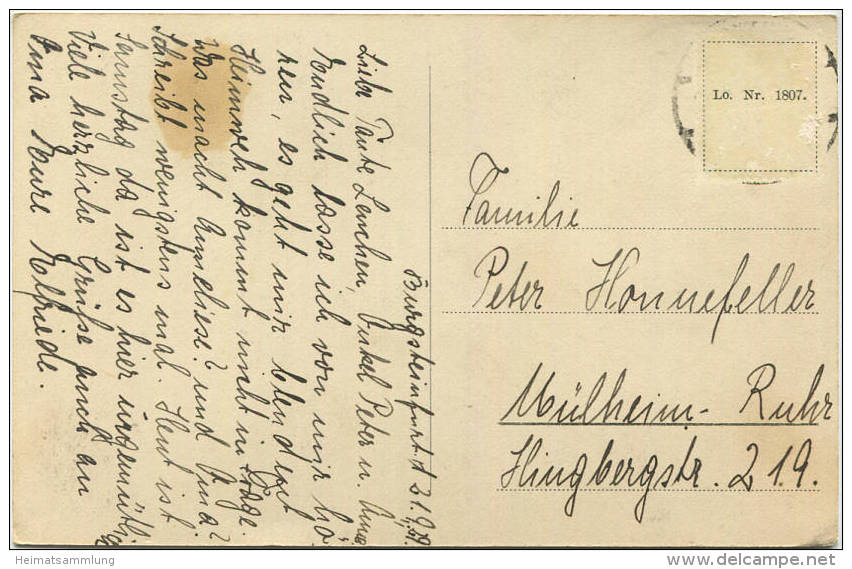 Burgsteinfurt, d. 21.9.
Liebe Tante Lenchen, Onkel Peter u. Anna
Endlich lasse ich von mir hö-
ren, es geht mir blendent
Heimweh kommt nicht in Frage.
Was macht Anneliese? und Oma?
Schreibt wenigstens mal. Heut ist
Samstag da ist es hier urgemütlig
Viele herzliche Grüße auch an
Oma Eure Elfriede.
Lo. Nr. 1807.
Familie
Peter Honnefeller
Mülheim-Ruhr
Hingbergstr. 219.
Heimatsammlung
www.delcampe.net